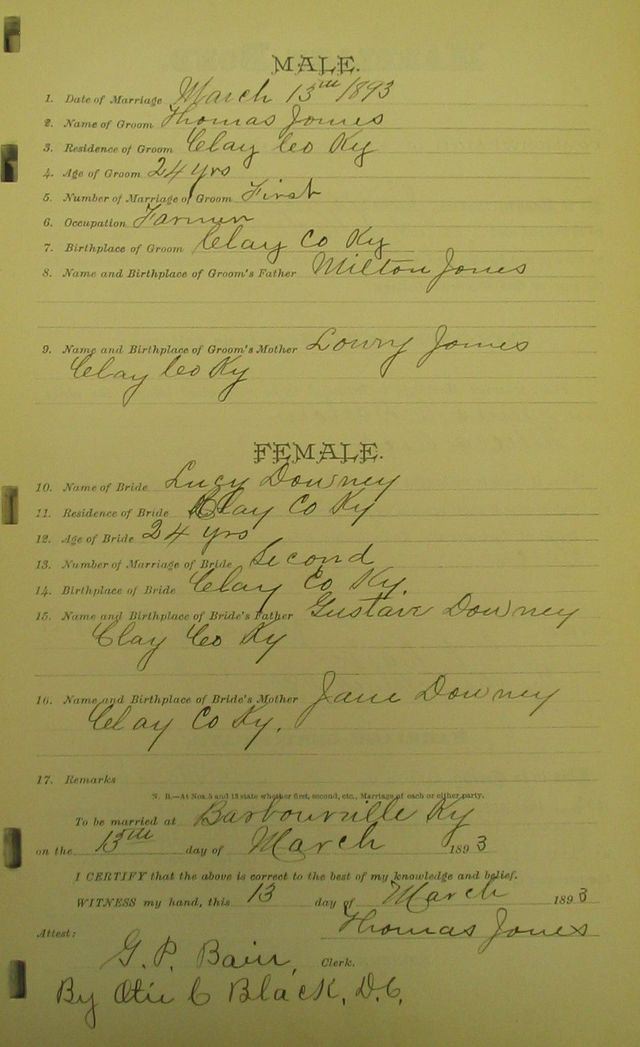 MALE.
1. Date of Marriage March 13th 1893
2. Name of Groom Thomas Jones
3. Residence of Groom Clay Co Ky
4. Age of Groom 24 yrs
5. Number of Marriage of Groom First
6. Occupation Farmer
7. Birthplace of Groom Clay Co Ky
8. Name and Birthplace of Groom's Father Milton Jones
9. Name and Birthplace of Groom's Mother Lowry Jones
Clay Co Ky
FEMALE.
10. Name of Bride Lucy Downey
11. Residence of Bride Clay Co Ky
12. Age of Bride 24 yrs
13. Number of Marriage of Bride Second
14. Birthplace of Bride Clay Co Ky.
15. Name and Birthplace of Bride's Father Gustave Downey
Clay Co Ky
16. Name and Birthplace of Bride's Mother Jane Downey
Clay Co Ky.
17. Remarks
N. B.—At Nos. 5 and 13 state whether first, second, etc., Marriage of each or either party.
To be married at Barbourville Ky
on the 13th day of March 1893
I CERTIFY that the above is correct to the best of my knowledge and belief.
WITNESS my hand, this 13 day of March 1893
Thomas Jones
Attest:
G. P. Bain, Clerk.
By Otis C Black, D.C.